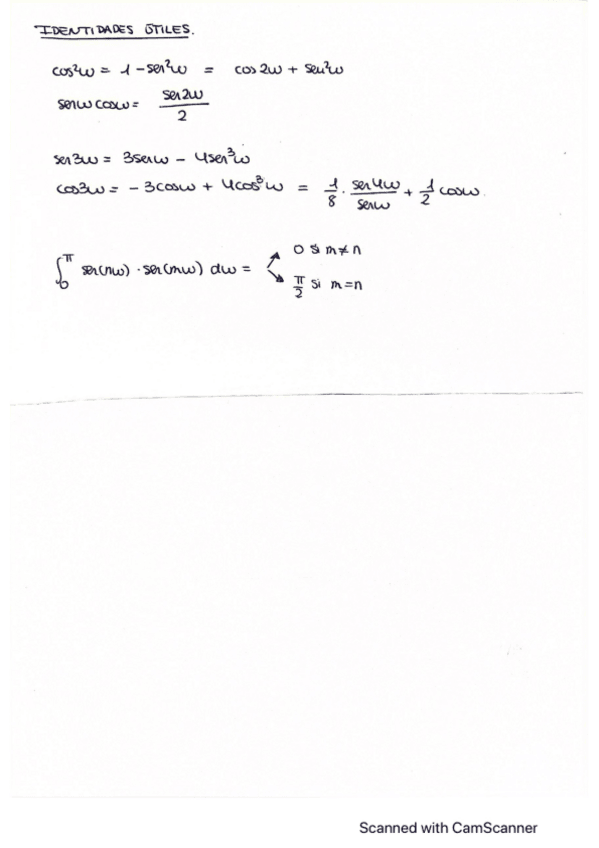 IDENTIDADES ÚTILES.
cos²w = 1 - sen²w = cos 2w + sen²w
senw cosw = sen2w / 2
sen3w = 3senw - 4sen³w
cos3w = -3cosw + 4cos³w = 1/8 · sen4w/senw + 1/2 cosw.
∫₀^π sen(nw) · sen(mw) dw = ↗ 0 si m≠n
↘ π/2 si m=n
Scanned with CamScanner